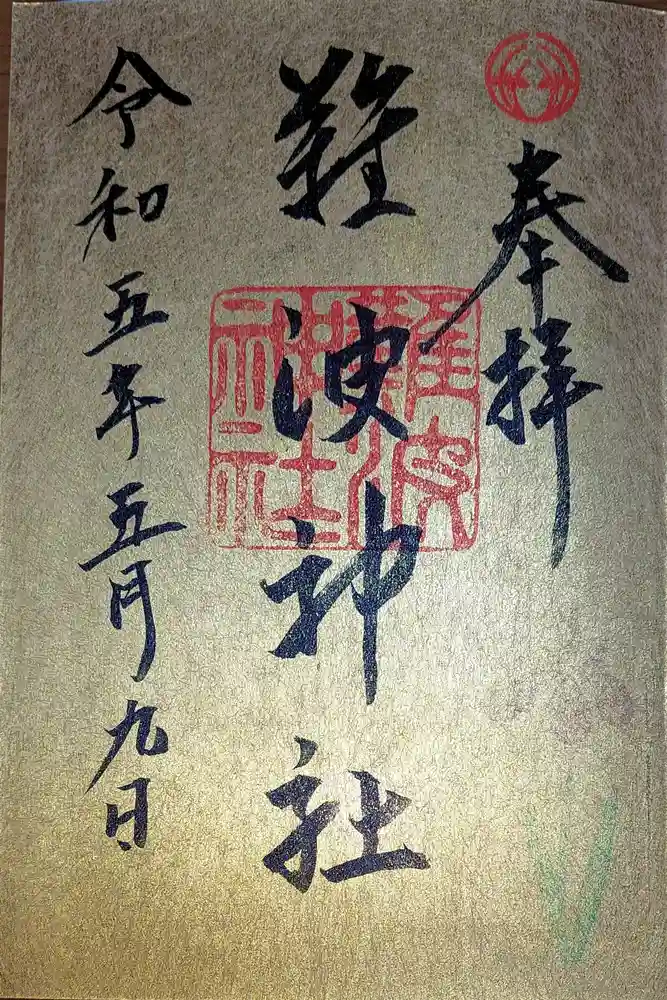 奉拝
難波神社
難波
神社
令和五年五月九日